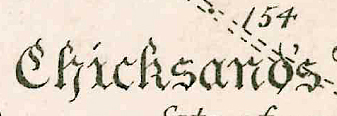 154
Chicksand's